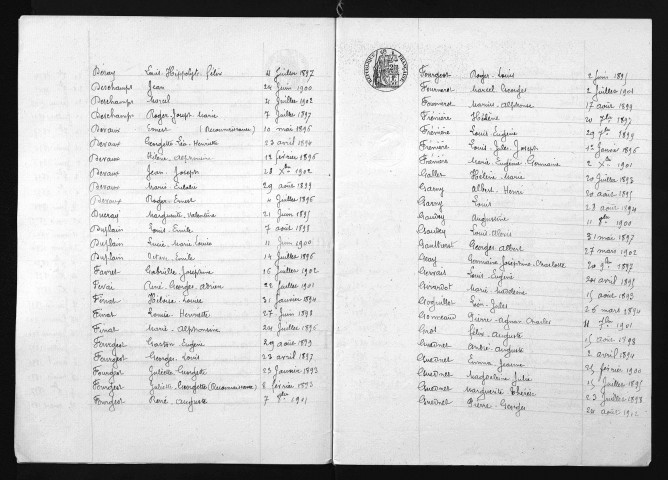 Deray Louis Hippolyte Félix 4 Juillet 1897
Deschamps Jean 24 Juin 1900
Deschamps Marcel 4 Juillet 1902
Deschamps Roger Joseph Marie 7 Juillet 1897
Devaux Ernest (Reconnaissance) 10 mai 1896
Devaux Georgette Léa Henriette 23 avril 1894
Devaux Hélène Alphonsine 13 février 1896
Devaux Jean Joseph 28 Xbre 1902
Devaux Marie Eulalie 29 août 1899
Devaux Roger Ernest 4 Juillet 1896
Ducray Marguerite Valentine 21 Juin 1895
Duplain Louis Emile 7 août 1898
Duplain Lucie Marie Louise 11 Juin 1900
Duplain Emile 14 Juillet 1896
Favret Gabrielle Joséphine 16 Juillet 1902
René Georges Adrien 22 Juillet 1901
Finot Héloïse Louise 31 Janvier 1894
Finot Louise Henriette 27 Juin 1898
Finot Marie Alphonsine 24 Juillet 1896
Fourgeot Gaston Eugène 29 août 1899
Fourgeot Georges Louis 23 avril 1897
Fourgeot Juliette Georgette 23 Janvier 1893
Fourgeot Juliette Georgette (Reconnaissance) 8 février 1893
Fourgeot René Auguste 7 1901
Fourgeot Roger Louis 2 Juin 1895
Fournerot Marcel Georges 2 Juillet 1901
Fournerot Marius Alphonse 17 août 1899
Frémière Hélène 20 7bre 1897
Frémière Louis Eugène 29 7bre 1899
Frémière Louis Jules Joseph 1er Janvier 1896
Frémière Marie Eugénie Germaine 2 Xbre 1901
Gallet Hélène Marie 20 Juillet 1893
Garny Albert Henri 20 août 1895
Garny Louis 28 août 1894
Gaudey Augustine 11 1900
Gaudey Louis Albert 31 mai 1897
Gaulherot Georges Albert 27 mars 1902
Geay Germaine Joséphine Charlotte 20 9bre 1897
Gervais Louis Eugène 24 avril 1895
Girardot Marie Madeleine 15 août 1893
Goguillot Léon Jules 26 mars 1894
Gonneaud Pierre Agnan Charles 11 7bre 1901
Grot Félix Auguste 15 août 1898
Guednet André Auguste 2 avril 1894
Guednet Emma Jeanne 25 février 1900
Guednet Magdeleine Julie 15 Juillet 1895
Guednet Marguerite Thérèse 23 Juillet 1898
Guednet Pierre Georges 24 août 1902